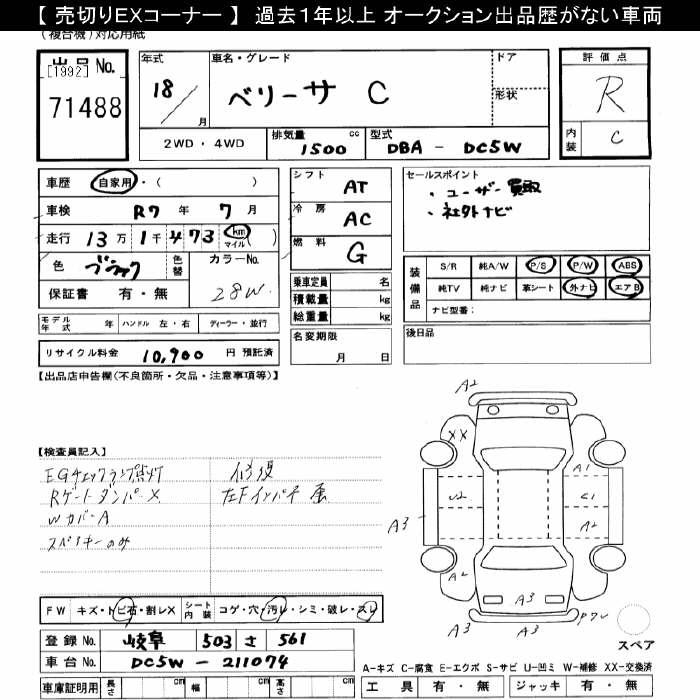 【 売切りEXコーナー 】 過去１年以上 オークション出品歴がない車両
(複合機)対応用紙
出品 No.
[1992]
71488
年式
18 / 月
車名・グレード
ベリーサ C
ドア
形状
評価点
R
内装
C
2WD ・ 4WD
排気量 cc
1500
型式
DBA - DC5W
車歴 自家用・( )
車検 R7 年 7 月
走行 13 万 1 千 473 km マイル ( )
色 ブラック 色替
カラーNo.
28W
保証書 有・無
シフト AT
冷房 AC
燃料 G
乗車定員 名
積載量 kg
総重量 kg
セールスポイント
・ユーザー買取
・社外ナビ
装備品
S/R 純A/W P/S P/W ABS
純TV 純ナビ 革シート 外ナビ エアB
ナビ型番：
モデル年式 年 ハンドル 左・右 ディーラー・並行
リサイクル料金 10,900 円 預託済
名変期限
月 日
後日品
【出品店申告欄(不良箇所・欠品・注意事項等)】
【検査員記入】
EGチェックランプ点灯
Rゲートダンパ×
Wカバー A
スペアキーのみ
修復
左Fインパネ
A2
XX
A1
U2
C1
A3
A2
A2
A3
A3
A3
スペア
FW キズ・トビ石・割レX
シート内装 コゲ・穴・汚レ・シミ・破レ・スレ
登録 No. 岐阜 503 さ 561
車台 No. DC5W - 211074
車庫証明用 長さ cm 幅 cm 高さ cm
A-キズ C-腐食 E-エクボ S-サビ U-凹ミ W-補修 XX-交換済
工具 有・無 ジャッキ 有・無